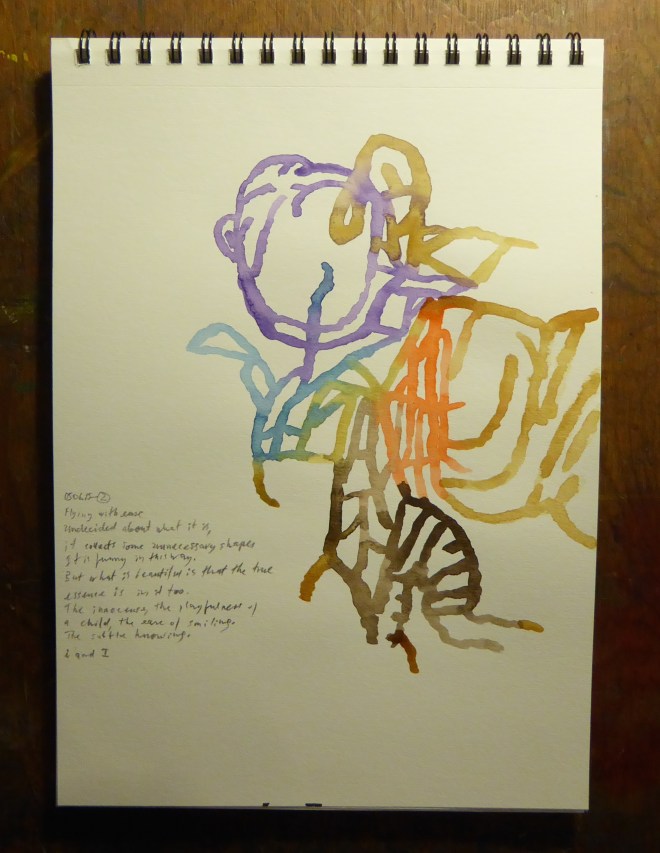 150615-②
Flying with ease
Undecided about what it is,
it collects some unnecessary shapes
It is funny in this way.
But what is beautiful is that the true
essence is in it too.
The innocence, the playfulness of
a child, the ease of smiling.
The subtle knowing.
i and I